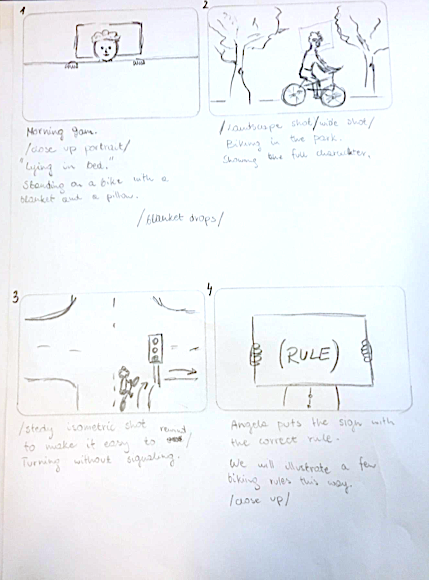 1
Morning 9am.
/close up portrait/
"Lying in bed."
Standing on a bike with a
blanket and a pillow.
/blanket drops/
2
/Landscape shot/wide shot/
Biking in the park.
Showing the full character.
3
/stedy isometric shot
to make it easy to /
Turning without signaling.
4
(RULE)
Angela puts the sign with
the correct rule.
We will illustrate a few
biking rules this way.
/close up/